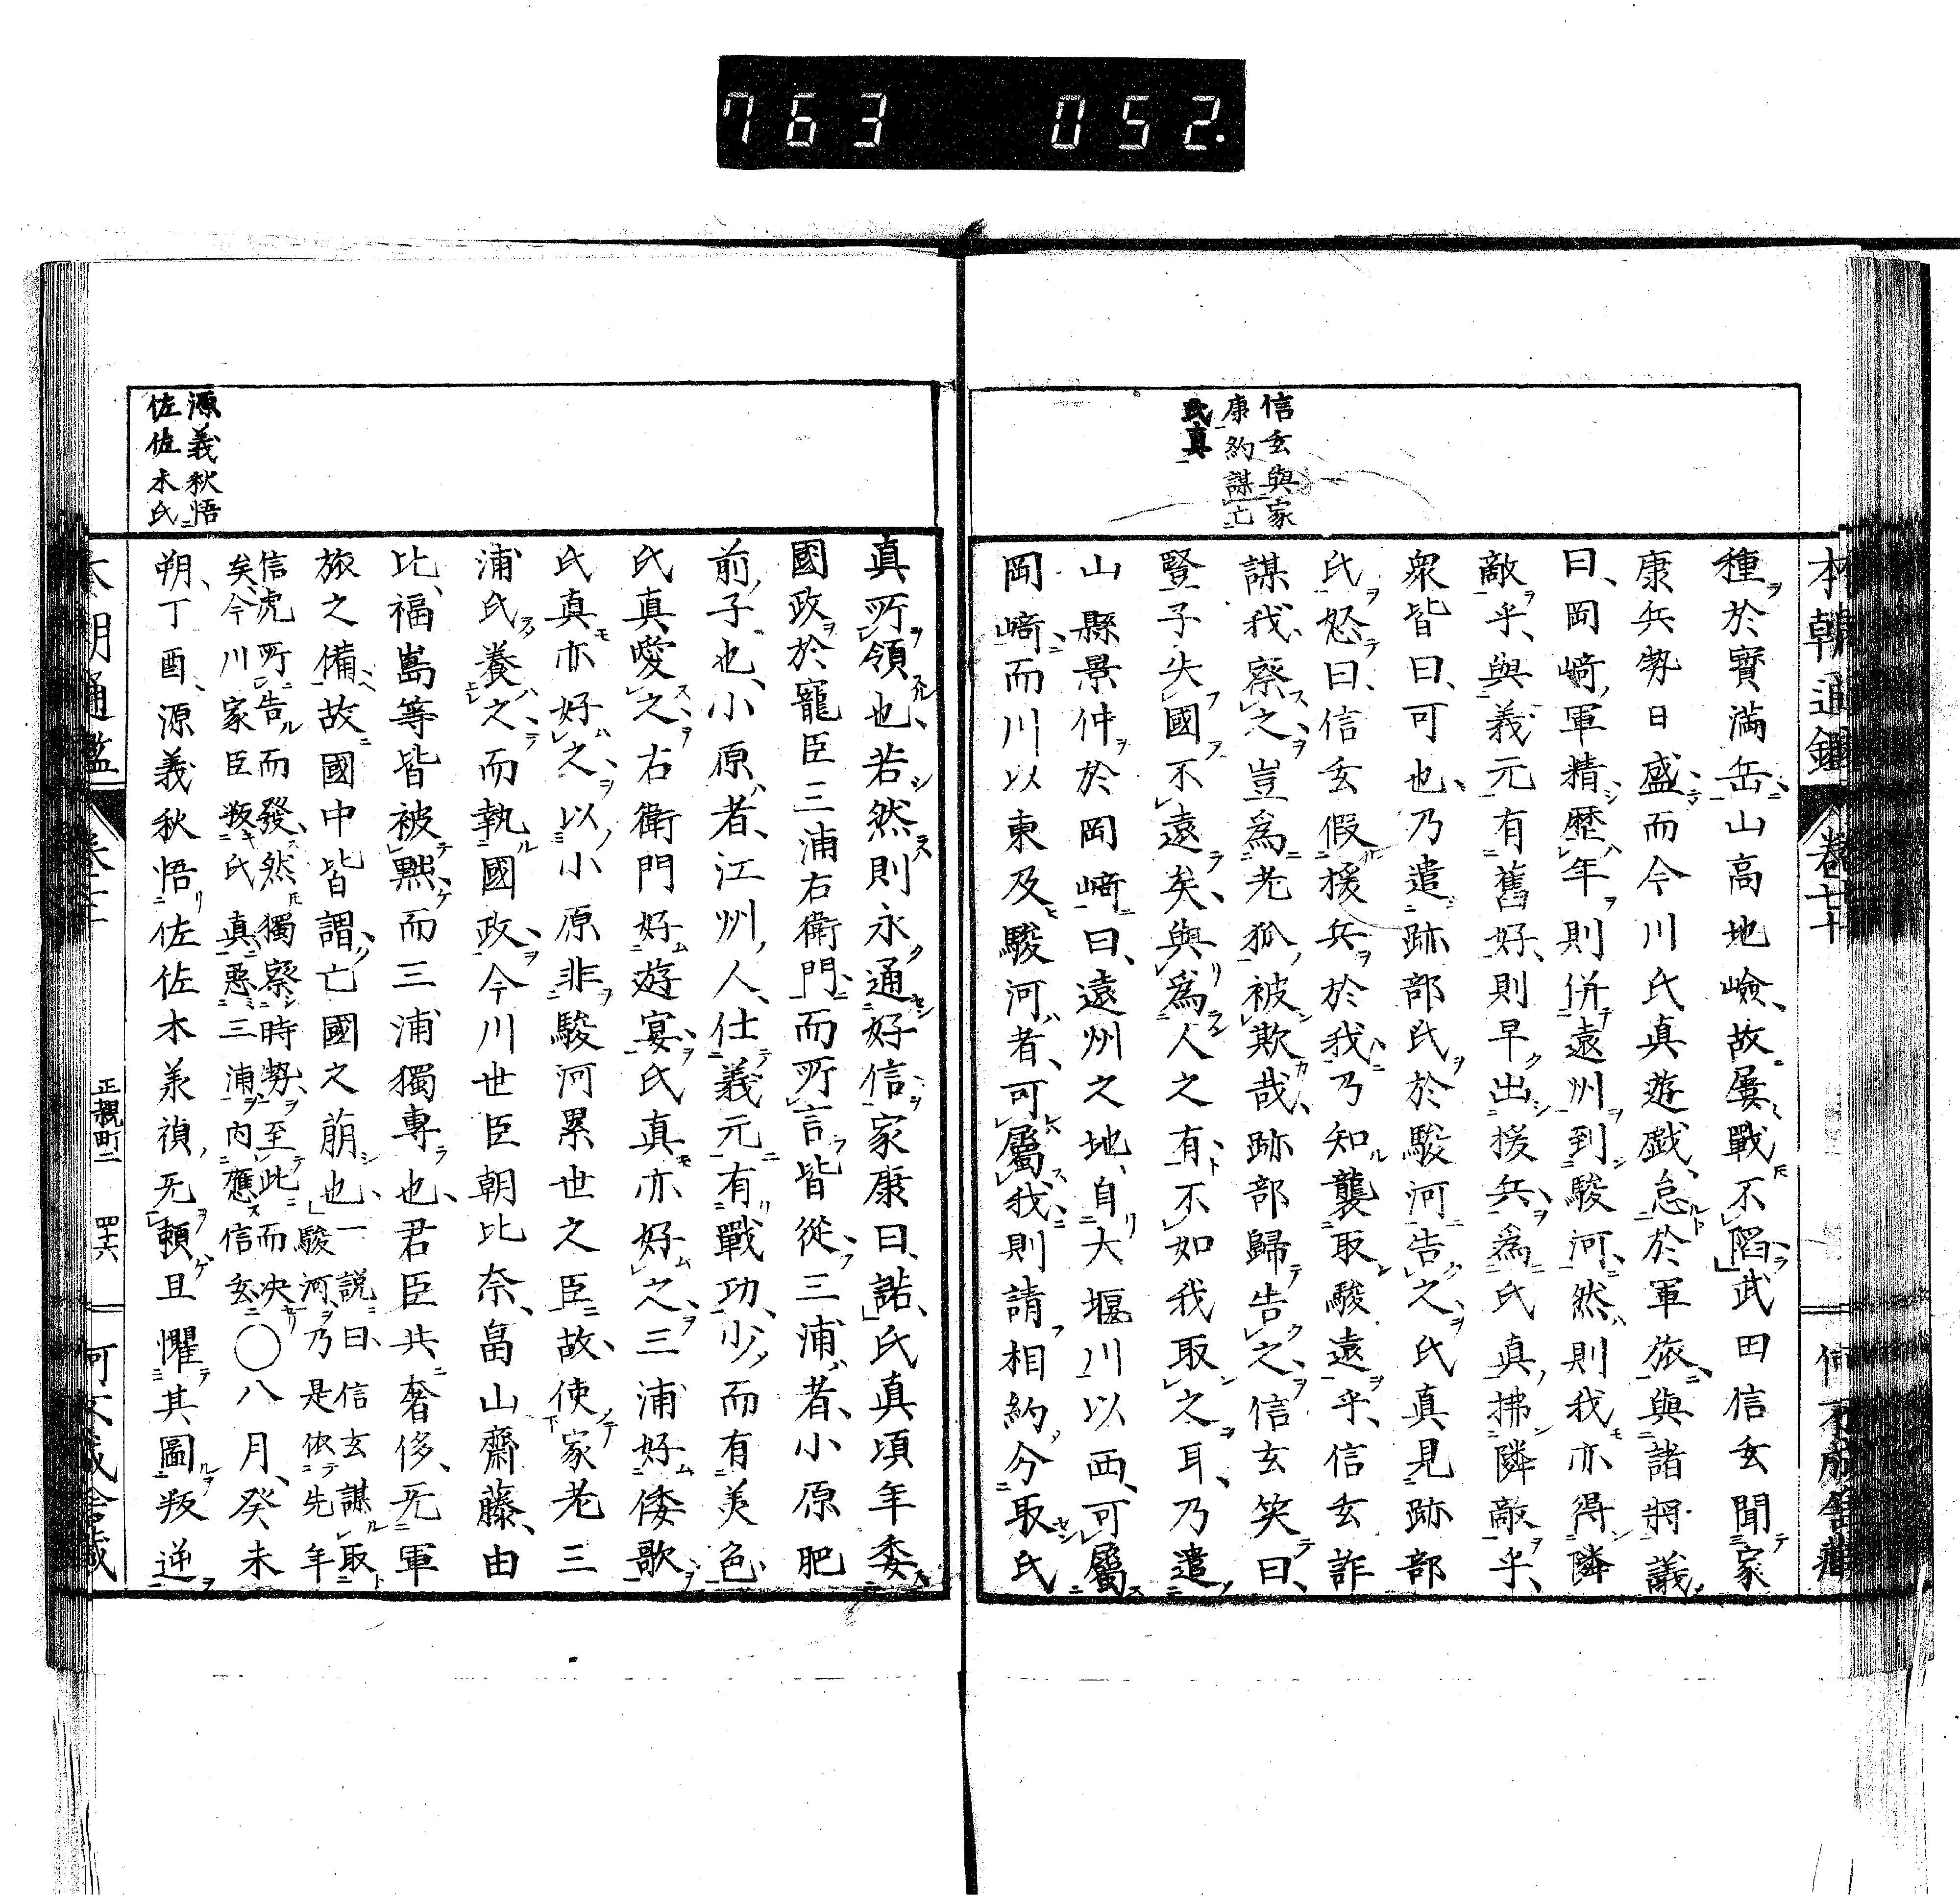 763 052.
本朝通鑑 卷七十
信玄與家
康約謀亡
氏真
種於寶滿岳山高地嶮故屢戰不陷武田信玄聞家
康兵勢日盛而今川氏真遊戯怠於軍旅與諸將議
曰岡﨑軍精歷年則併遠州到駿河然則我亦得隣
敵乎與義元有舊好則早出援兵爲氏真拂隣敵乎
衆皆曰可也乃遣跡部氏於駿河告之氏真見跡部
氏怒曰信玄假援兵於我乃知襲取駿遠乎信玄詐
謀我察之豈爲老狐被欺哉跡部歸告之信玄笑曰
豎子失國不遠矣與爲人之有不如我取之耳乃遣
山縣景仲於岡﨑曰遠州之地自大堰川以西可屬
岡﨑而川以東及駿河者可屬我則請相約分取氏
真所領也若然則永通好信家康曰諾氏真頃年委
國政於寵臣三浦右衛門而所言皆從三浦者小原肥
前子也小原者江州人仕義元有戰功少而有美色
氏真愛之右衛門好遊宴氏真亦好之三浦好倭歌
氏真亦好之以小原非駿河累世之臣故使家老三
浦氏養之而執國政今川世臣朝比奈畠山齋藤由
比福嶌等皆被黜而三浦獨專也君臣共奢侈无軍
旅之備故國中皆謂亡國之萠也一説曰信玄謀取
駿河乃是依先年
信虎所告而發然獨察時勢至此而决
矣今川家臣叛氏真惡三浦内應信玄〇八月癸未
朔丁酉源義秋悟佐佐木義禎无賴且懼其圖叛逆
源義秋悟
佐佐木氏
正親町二 四十六